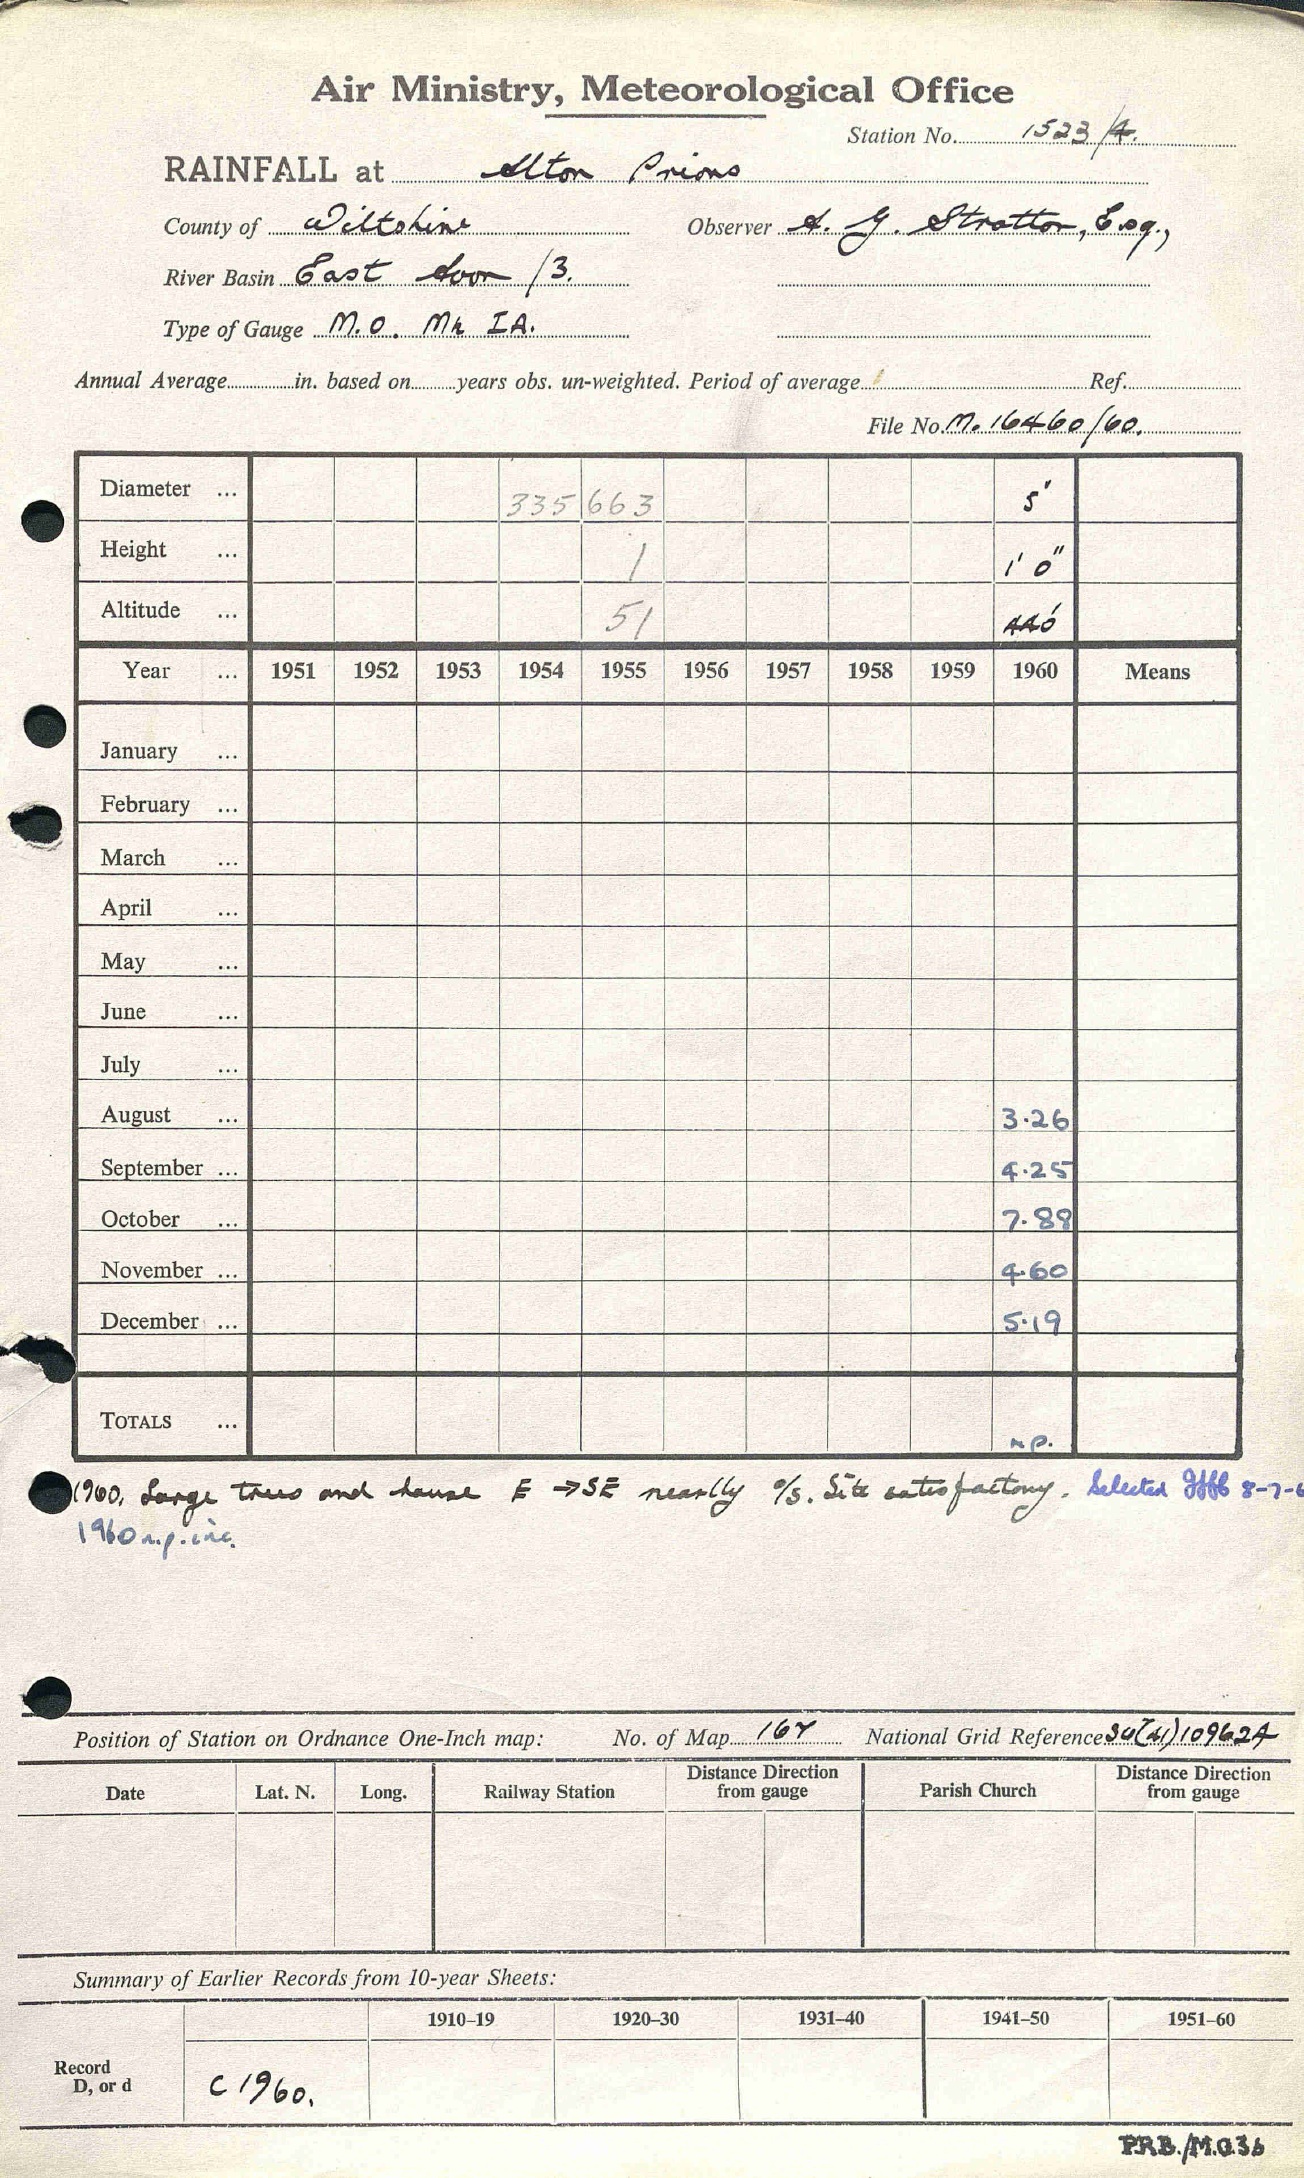 Air Ministry, Meteorological Office
Station No. 1523/4.
RAINFALL at Alton Priors
County of Wiltshire Observer A. G. Stratton, Esq.,
River Basin East Avon /3.
Type of Gauge M.O. Mk IA.
Annual Average in. based on years obs. un-weighted. Period of average Ref.
File No. M. 16460/60.
Diameter ... 335 663 5"
Height ... 1 1' 0"
Altitude ... 51 440'
Year ... 1951 1952 1953 1954 1955 1956 1957 1958 1959 1960 Means
January ...
February ...
March ...
April ...
May ...
June ...
July ...
August ... 3.26
September ... 4.25
October ... 7.88
November ... 4.60
December ... 5.19
TOTALS ... n.p.
1960. Large trees and house E → SE nearly o/s. Site satisfactory. Selected 8-7-6
1960 n.p. inc.
Position of Station on Ordnance One-Inch map: No. of Map 167 National Grid Reference SU(41)109624
Date Lat. N. Long. Railway Station Distance Direction from gauge Parish Church Distance Direction from gauge
Summary of Earlier Records from 10-year Sheets:
1910–19 1920–30 1931–40 1941–50 1951–60
Record
D, or d C 1960.
P.R.B./M.O.36